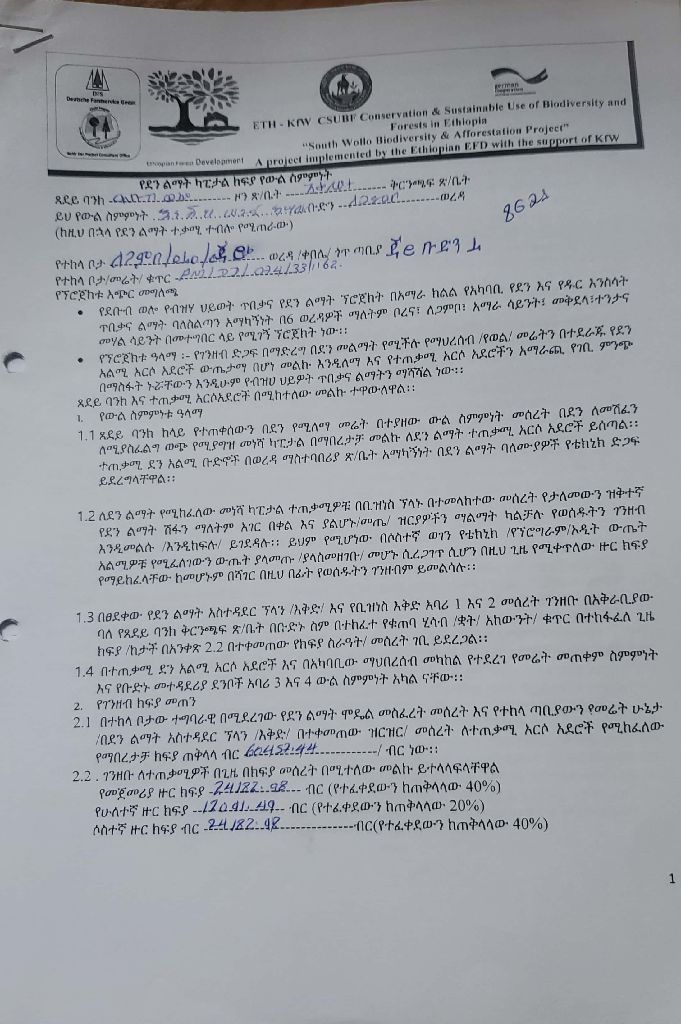 DFS
Deutsche Forstservice GmbH
Ethiopian Forest Development
german cooperation
ETH - KfW CSUBF Conservation & Sustainable Use of Biodiversity and
Forests in Ethiopia
"South Wollo Biodiversity & Afforestation Project"
A project implemented by the Ethiopian EFD with the support of KfW
የደን ልማት ካፒታል ከፍያ የውል ስምምነት
ጸደይ ባንክ ዞን ጽ/ቤት ቅርንጫፍ ጽ/ቤት
ይህ የውል ስምምነት ቡድን ወረዳ
8621
(ከዚህ በኋላ የደን ልማት ተቃሚ ተብሎ የሚጠራው)
የተከላ ቦታ ወረዳ /ቀበሌ/ ጎጥ ጣቢያ
የተከላ ቦታ/መሬት/ ቁጥር
የፕሮጀክቱ አጭር መግለጫ
• የደቡብ ወሎ የብዝሃ ህይወት ጥበቃና የደን ልማት ፕሮጀክት በአማራ ክልል የአካባቢ የደን እና የዱር እንስሳት
ጥበቃና ልማት ባለስልጣን አማካኝነት በ6 ወረዳዎች ማለትም ቦረና፣ ለጋምቦ፣ አማራ ሳይንት፣ መቅደላ፣ተንታና
መሃል ሳይንት በመተግበር ላይ የሚገኝ ፕሮጀክት ነው፡፡
• የፕሮጀክቱ ዓላማ :- የገንዘብ ድጋፍ በማድረግ በደን መልማት የሚችሉ የማህበረሰብ /የወል/ መሬትን በተደራጁ የደን
አልሚ አርሶ አደሮች ውጤታማ በሆነ መልኩ እንዲለማ እና የተጠቃሚ አርሶ አደሮችን አማራጪ የገቢ ምንጭ
በማስፋት ኑሯቸውን እንዲሁም የብዝሀ ህይዎት ጥበቃና ልማትን ማሻሻል ነው፡፡
ጸደይ ባንክ እና ተጠቃሚ አርሶአደሮች በሚከተለው መልኩ ተዋውለዋል፡፡
1. የውል ስምምነቱ ዓላማ
1.1 ጸደይ ባንክ ከላይ የተጠቀሰውን በደን የሚለማ መሬት በተያዘው ውል ስምምነት መሰረት በደን ለመሸፈን
ለሚያስፈልግ ወጭ የሚያግዝ መነሻ ካፒታል በማበረታቻ መልኩ ለደን ልማት ተጠቃሚ አርሶ አደሮች ይሰጣል፡፡
ተጠቃሚ ደን አልሚ ቡድኖች በወረዳ ማስተባበሪያ ጽ/ቤት አማካኝነት በደን ልማት ባለሙያዎች የቴክኒክ ድጋፍ
ይደረግላቸዋል፡፡
1.2 ለደን ልማት የሚከፈለው መነሻ ካፒታል ተጠቃሚዎቹ በቢዝነስ ፕላኑ በተመላከተው መሰረት የታለመውን ዝቅተኛ
የደን ልማት ሽፋን ማለትም አገር በቀል እና ያልሆኑ/መጤ/ ዝርያዎችን ማልማት ካልቻሉ የወሰዱትን ገንዘብ
እንዲመልሱ /እንዲከፍሉ/ ይገደዳሉ፡፡ ይህም የሚሆነው በሶስተኛ ወገን የቴክኒክ /የፕሮግራም/ኦዲት ውጤት
አልሚዎቹ የሚፈለገውን ውጤት ያላመጡ /ያላስመዘገቡ/ መሆኑ ሲረጋገጥ ሲሆን በዚህ ጊዜ የሚቀጥለው ዙር ክፍያ
የማይከፈላቸው ከመሆኑም በሻገር በዚህ በፊት የወሰዱትን ገንዘብም ይመልሳሉ፡፡
1.3 በፀደቀው የደን ልማት አስተዳደር ፕላን /እቅድ/ እና የቢዝነስ እቅድ አባሪ 1 እና 2 መሰረት ገንዘቡ በአቅራቢያው
ባለ የጸደይ ባንክ ቅርንጫፍ ጽ/ቤት በቡድኑ ስም በተከፈተ የቁጠባ ሂሳብ /ቋት/ አካውንት/ ቁጥር በተከፋፈለ ጊዜ
ክፍያ /ከታች በአንቀጽ 2.2 በተቀመጠው የክፍያ ስራዓት/ መሰረት ገቢ ይደረጋል፡፡
1.4 በተጠቃሚ ደን አልሚ አርሶ አደሮች እና በአካባቢው ማህበረሰብ መካከል የተደረገ የመሬት መጠቀም ስምምነት
እና የቡድኑ መተዳደሪያ ደንቦች አባሪ 3 እና 4 ውል ስምምነት አካል ናቸው፡፡
2. የገንዘብ ከፍያ መጠን
2.1 በተከላ ቦታው ተግባራዊ በሚደረገው የደን ልማት ሞዴል መስፈረት መሰረት እና የተከላ ጣቢያውን የመሬት ሁኔታ
/በደን ልማት አስተዳደር ፕላን /እቅድ/ በተቀመጠው ዝርዝር/ መሰረት ለተጠቃሚ አርሶ አደሮች የሚከፈለው
የማበረታቻ ክፍያ ጠቅላላ ብር 60457.44 / ብር ነው፡፡
2.2 . ገንዘቡ ለተጠቃሚዎች በጊዜ በከፍያ መሰረት በሚተለው መልኩ ይተላላፍላቸዋል
የመጀመሪያ ዙር ከፍያ 24182.98 ብር (የተፈቀደውን ከጠቅላላው 40%)
የሁለተኛ ዙር ከፍያ 12091.49 ብር (የተፈቀደውን ከጠቅላላው 20%)
ሶስተኛ ዙር ከፍያ ብር 24182.98 ብር(የተፈቀደውን ከጠቅላላው 40%)
1